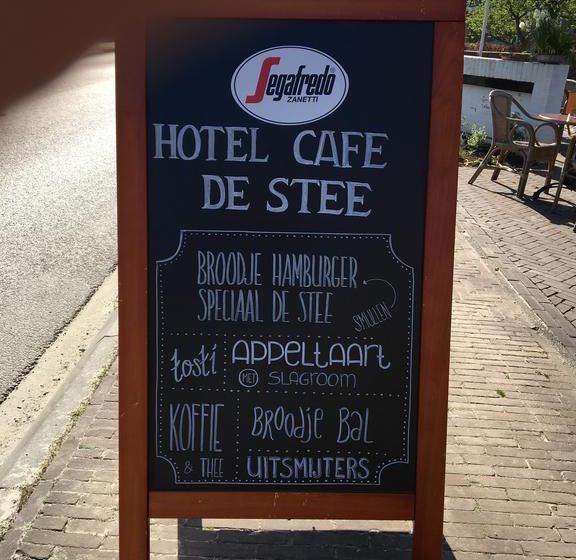 Segafredo
ZANETTI
HOTEL CAFE
DE STEE
BROODJE HAMBURGER
SPECIAAL DE STEE
SMULLEN
tosti
APPELtAARt
MET SLAGROOM
KOFFIE
& THEE
BROODJE BAL
UITSMIJTERS